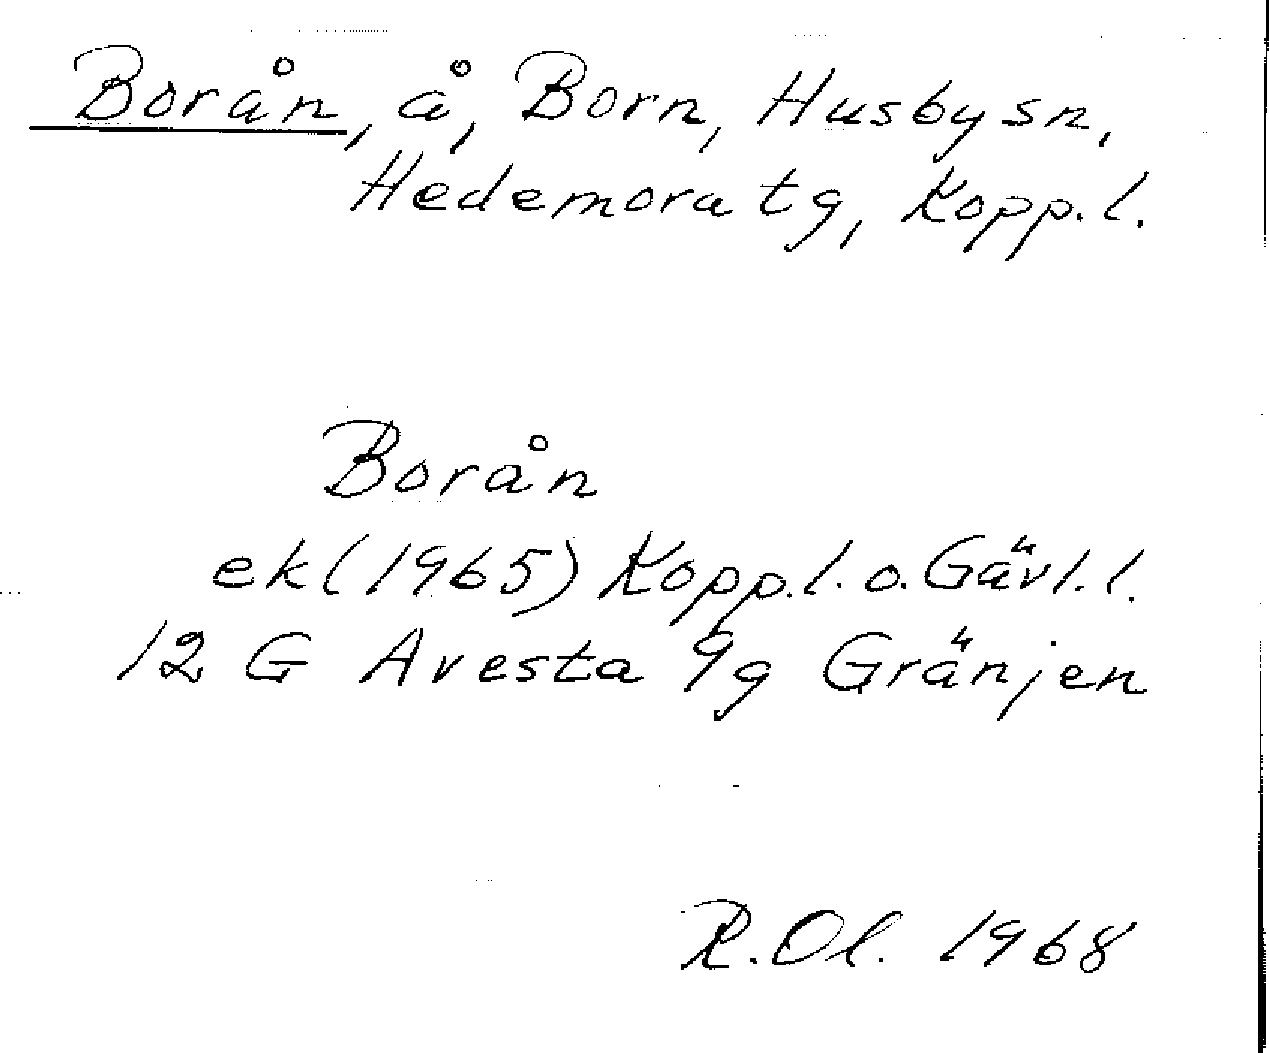 Borån, å, Born, Husby sn,
Hedemora tg, Kopp. l.
Borån
ek (1965) Kopp. l. o. Gävl. l.
12 G Avesta 9g Gränjen
R. Ol. 1968